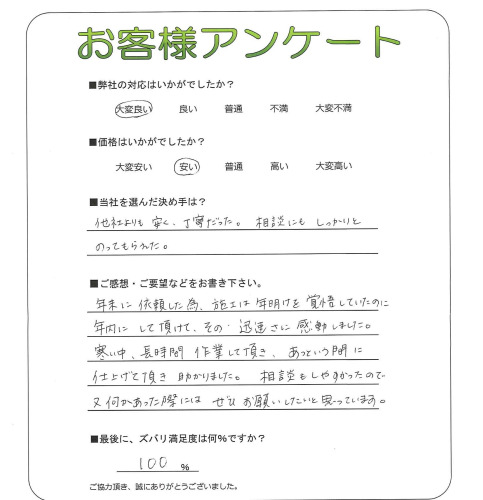 お客様アンケート
■弊社の対応はいかがでしたか？
大変良い 良い 普通 不満 大変不満
■価格はいかがでしたか？
大変安い 安い 普通 高い 大変高い
■当社を選んだ決め手は？
他社よりも安く、丁寧だった。相談にもしっかりと
のってもらえた。
■ご感想・ご要望などをお書き下さい。
年末に依頼した為、施工は年明けを覚悟していたのに
年内にして頂けて、その迅速さに感動しました。
寒い中、長時間作業して頂き、あっという間に
仕上げて頂き助かりました。相談もしやすかったので
又何かあった際にはぜひお願いしたいと思っています。
■最後に、ズバリ満足度は何％ですか？
100 ％
ご協力頂き、誠にありがとうございました。